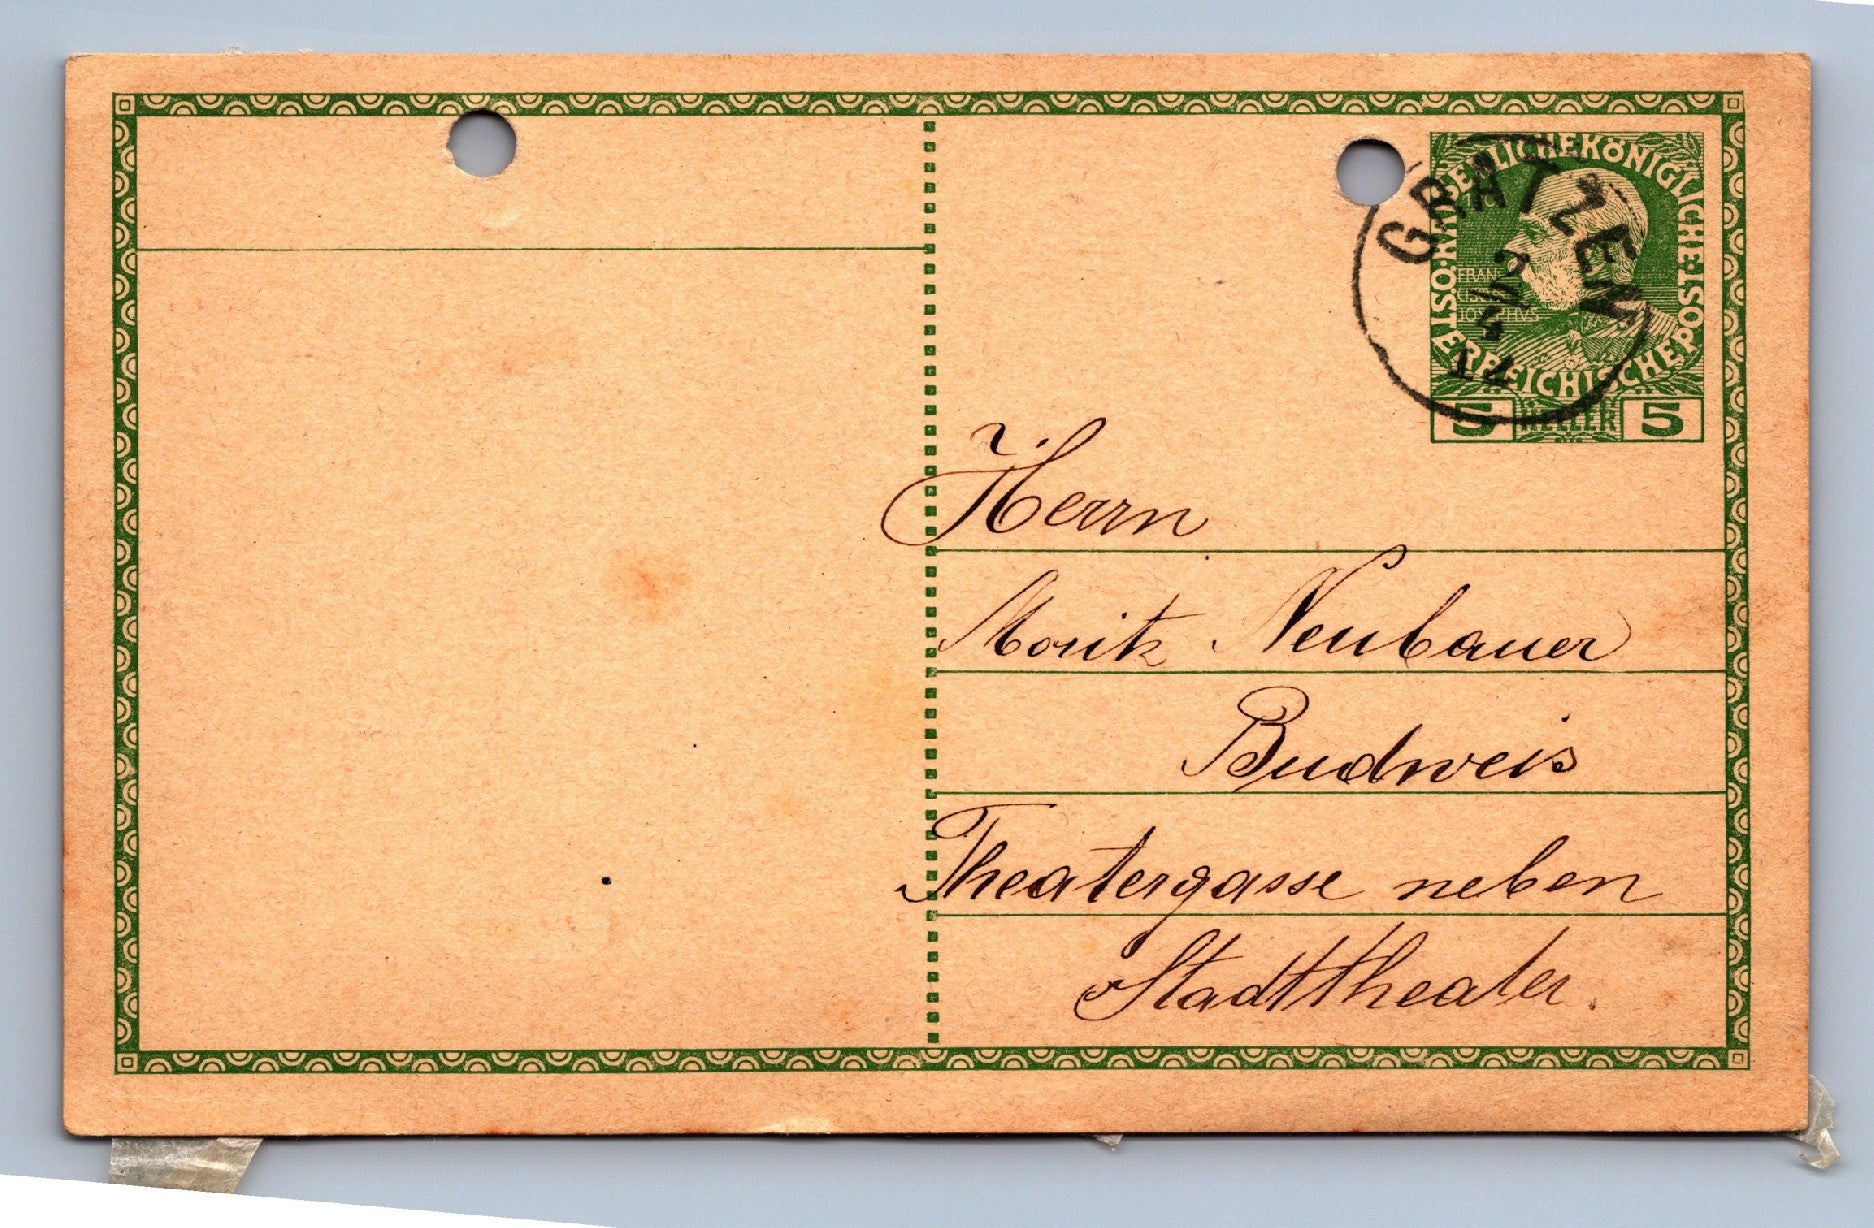 KAISERLICHEKÖNIGLICHE·ÖSTERREICHISCHEPOST·
FRAN-
CISCVS
IOSEPHVS
5 HELLER 5
GRATZEN
Herrn
Moritz Neubauer
Budweis
Theatergasse neben
Stadttheater.